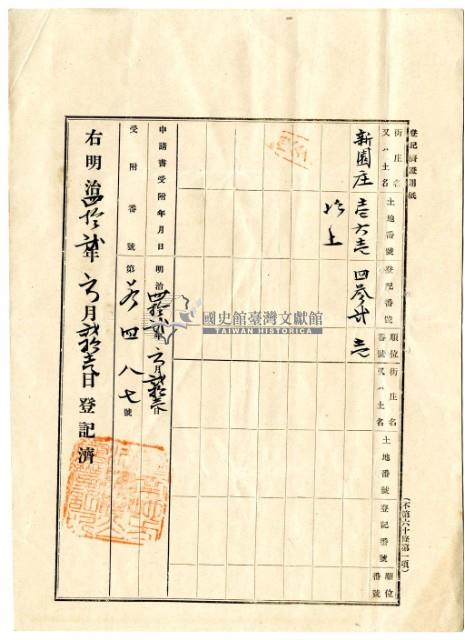 登記濟證用紙
街庄名又ハ土名
土地番號
登記番號
順位番號
街庄名又ハ土名
土地番號
登記番號
順位番號
新園庄 壱六壱 四參 壱
以上
申請書受附年月日 明治四拾貳年六月貳拾壱日
受附番號 第 四八七號
右明治四拾貳年六月貳拾壱日登記濟
(不第六十條第一項)
國史館臺灣文獻館
TAIWAN HISTORICA